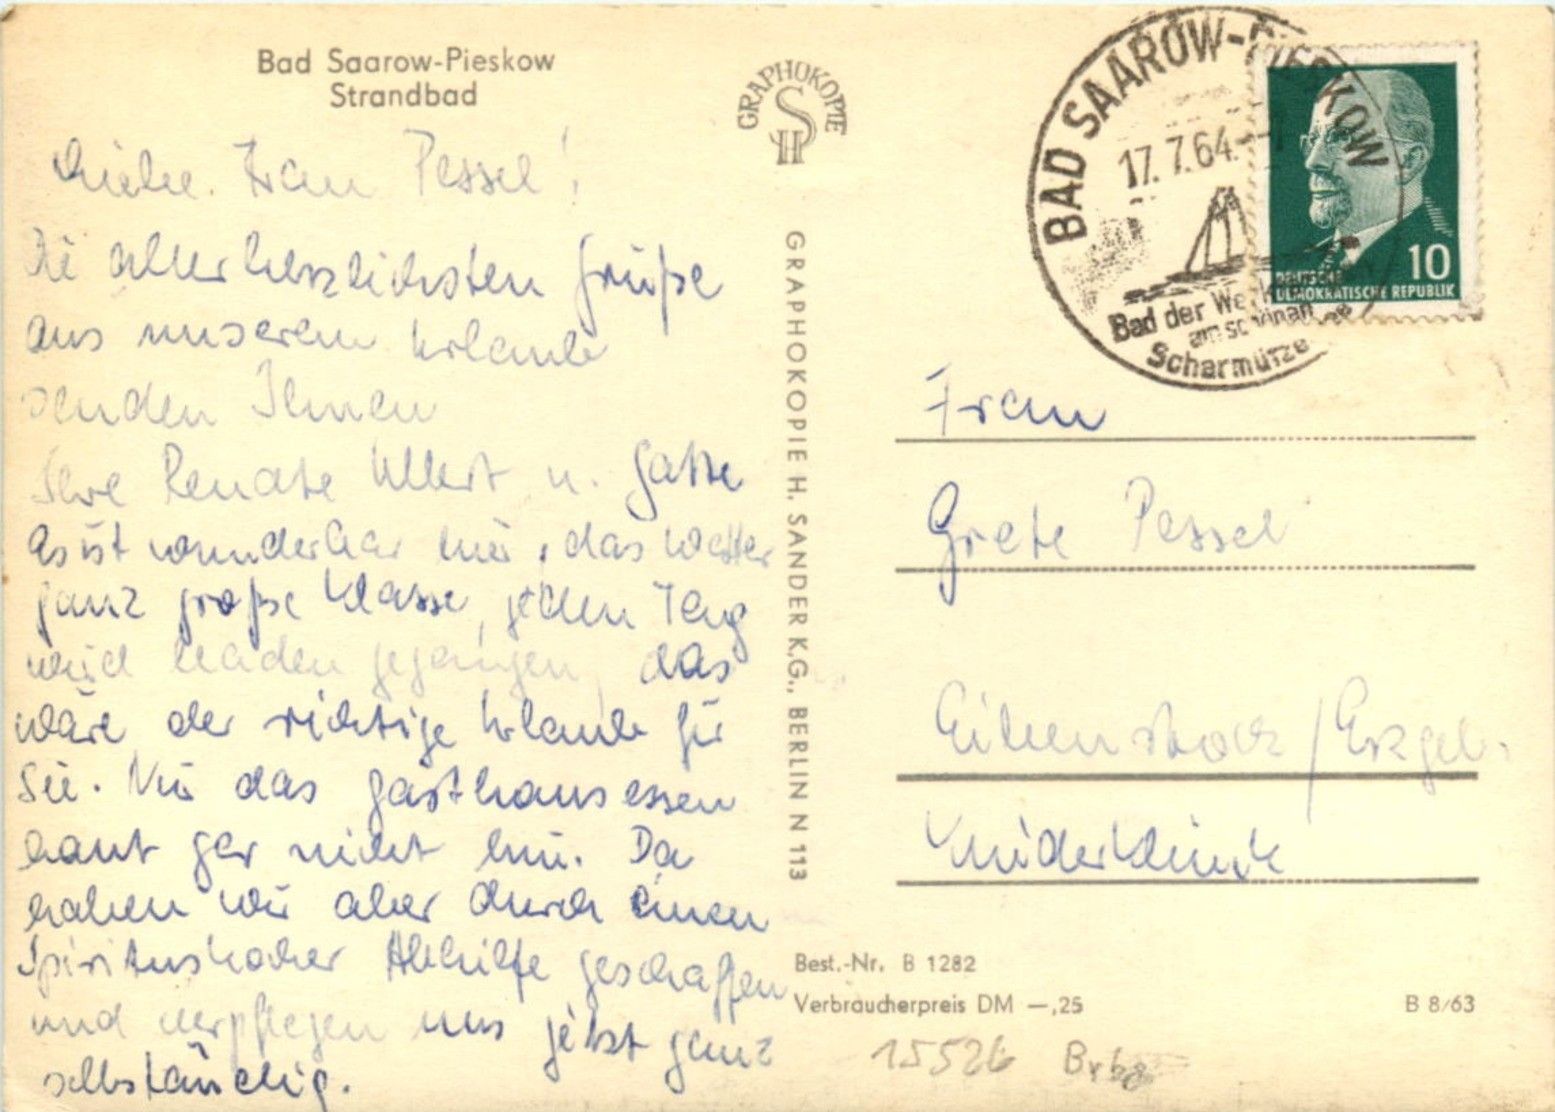 Bad Saarow-Pieskow
Strandbad
Liebe Frau Pessel!
Die allerherzlichsten Grüße
aus unserem Urlaub
senden Ihnen
Ihre Renate Ullert u. Gatte
Es ist wunderbar hier, das Wetter
ganz große Klasse, jeden Tag
wird baden gegangen, das
wäre der richtige Urlaub für
Sie. Nur das Gasthausessen
haut gar nicht hin. Da
haben wir aber durch einen
Spirituskocher Abhilfe geschaffen
und verpflegen uns jetzt ganz
selbständig.
GRAPHOKOPIE
SH
GRAPHOKOPIE H. SANDER K.G., BERLIN N 113
BAD SAAROW-PIESKOW
17.7.64
Bad der
am schönen
Scharmützel
10
DEUTSCHE
DEMOKRATISCHE REPUBLIK
Frau
Grete Pessel
Eibenstock/Erzgeb.
Kinderklinik
Best.-Nr. B 1282
Verbraucherpreis DM —,25
B 8/63
15526 Brbg